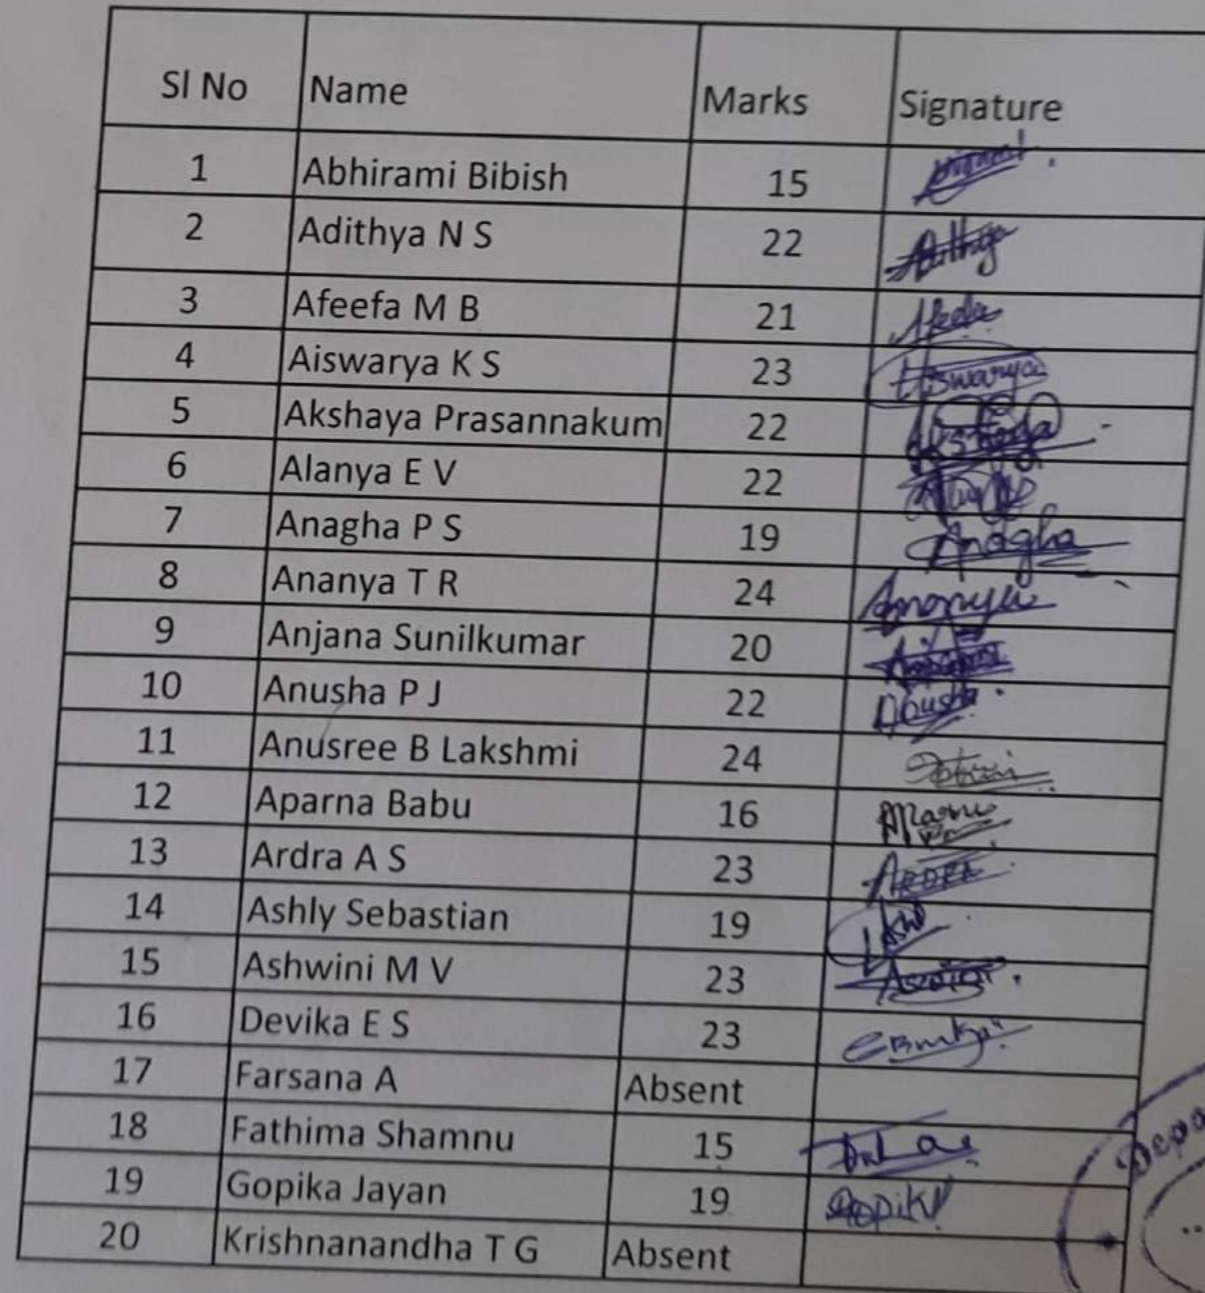 Sl No Name Marks Signature
1 Abhirami Bibish 15
2 Adithya N S 22 Adithya
3 Afeefa M B 21
4 Aiswarya K S 23 Aiswarya
5 Akshaya Prasannakum 22
6 Alanya E V 22
7 Anagha P S 19 Anagha
8 Ananya T R 24 Ananya
9 Anjana Sunilkumar 20
10 Anusha P J 22 Anusha
11 Anusree B Lakshmi 24
12 Aparna Babu 16
13 Ardra A S 23 ARDRA
14 Ashly Sebastian 19
15 Ashwini M V 23
16 Devika E S 23
17 Farsana A Absent
18 Fathima Shamnu 15
19 Gopika Jayan 19 Gopika
20 Krishnanandha T G Absent
Depa